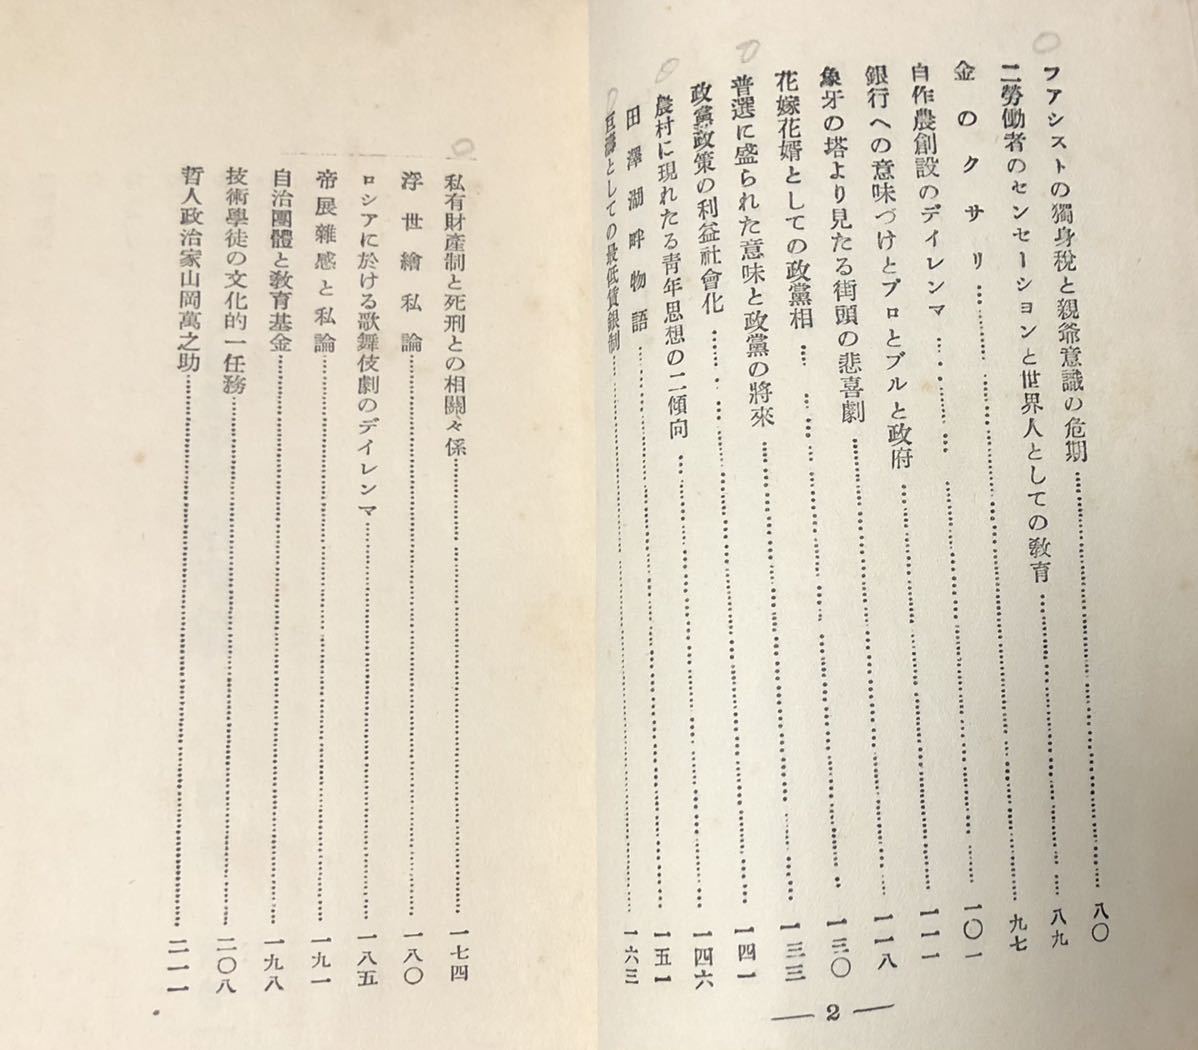 ファシストの獨身稅と親爺意識の危期……八〇
二勞働者のセンセーションと世界人としての敎育……八九
金のクサリ……九七
自作農創設のデイレンマ……一〇一
銀行への意味づけとプロとブルと政府……一一一
象牙の塔より見たる街頭の悲喜劇……一一八
花嫁花婿としての政黨相……一三〇
普選に盛られた意味と政黨の將來……一三三
政黨政策の利益社會化……一四一
農村に現れたる靑年思想の二傾向……一四六
田澤湖畔物語……一五一
としての最低賃銀制……一六三
— 2 —
私有財產制と死刑との相關々係……一七四
浮世繪私論……一八〇
ロシアに於ける歌舞伎劇のデイレンマ……一八五
帝展雜感と私論……一九一
自治團體と敎育基金……一九八
技術學徒の文化的一任務……二〇八
哲人政治家山岡萬之助……二一一